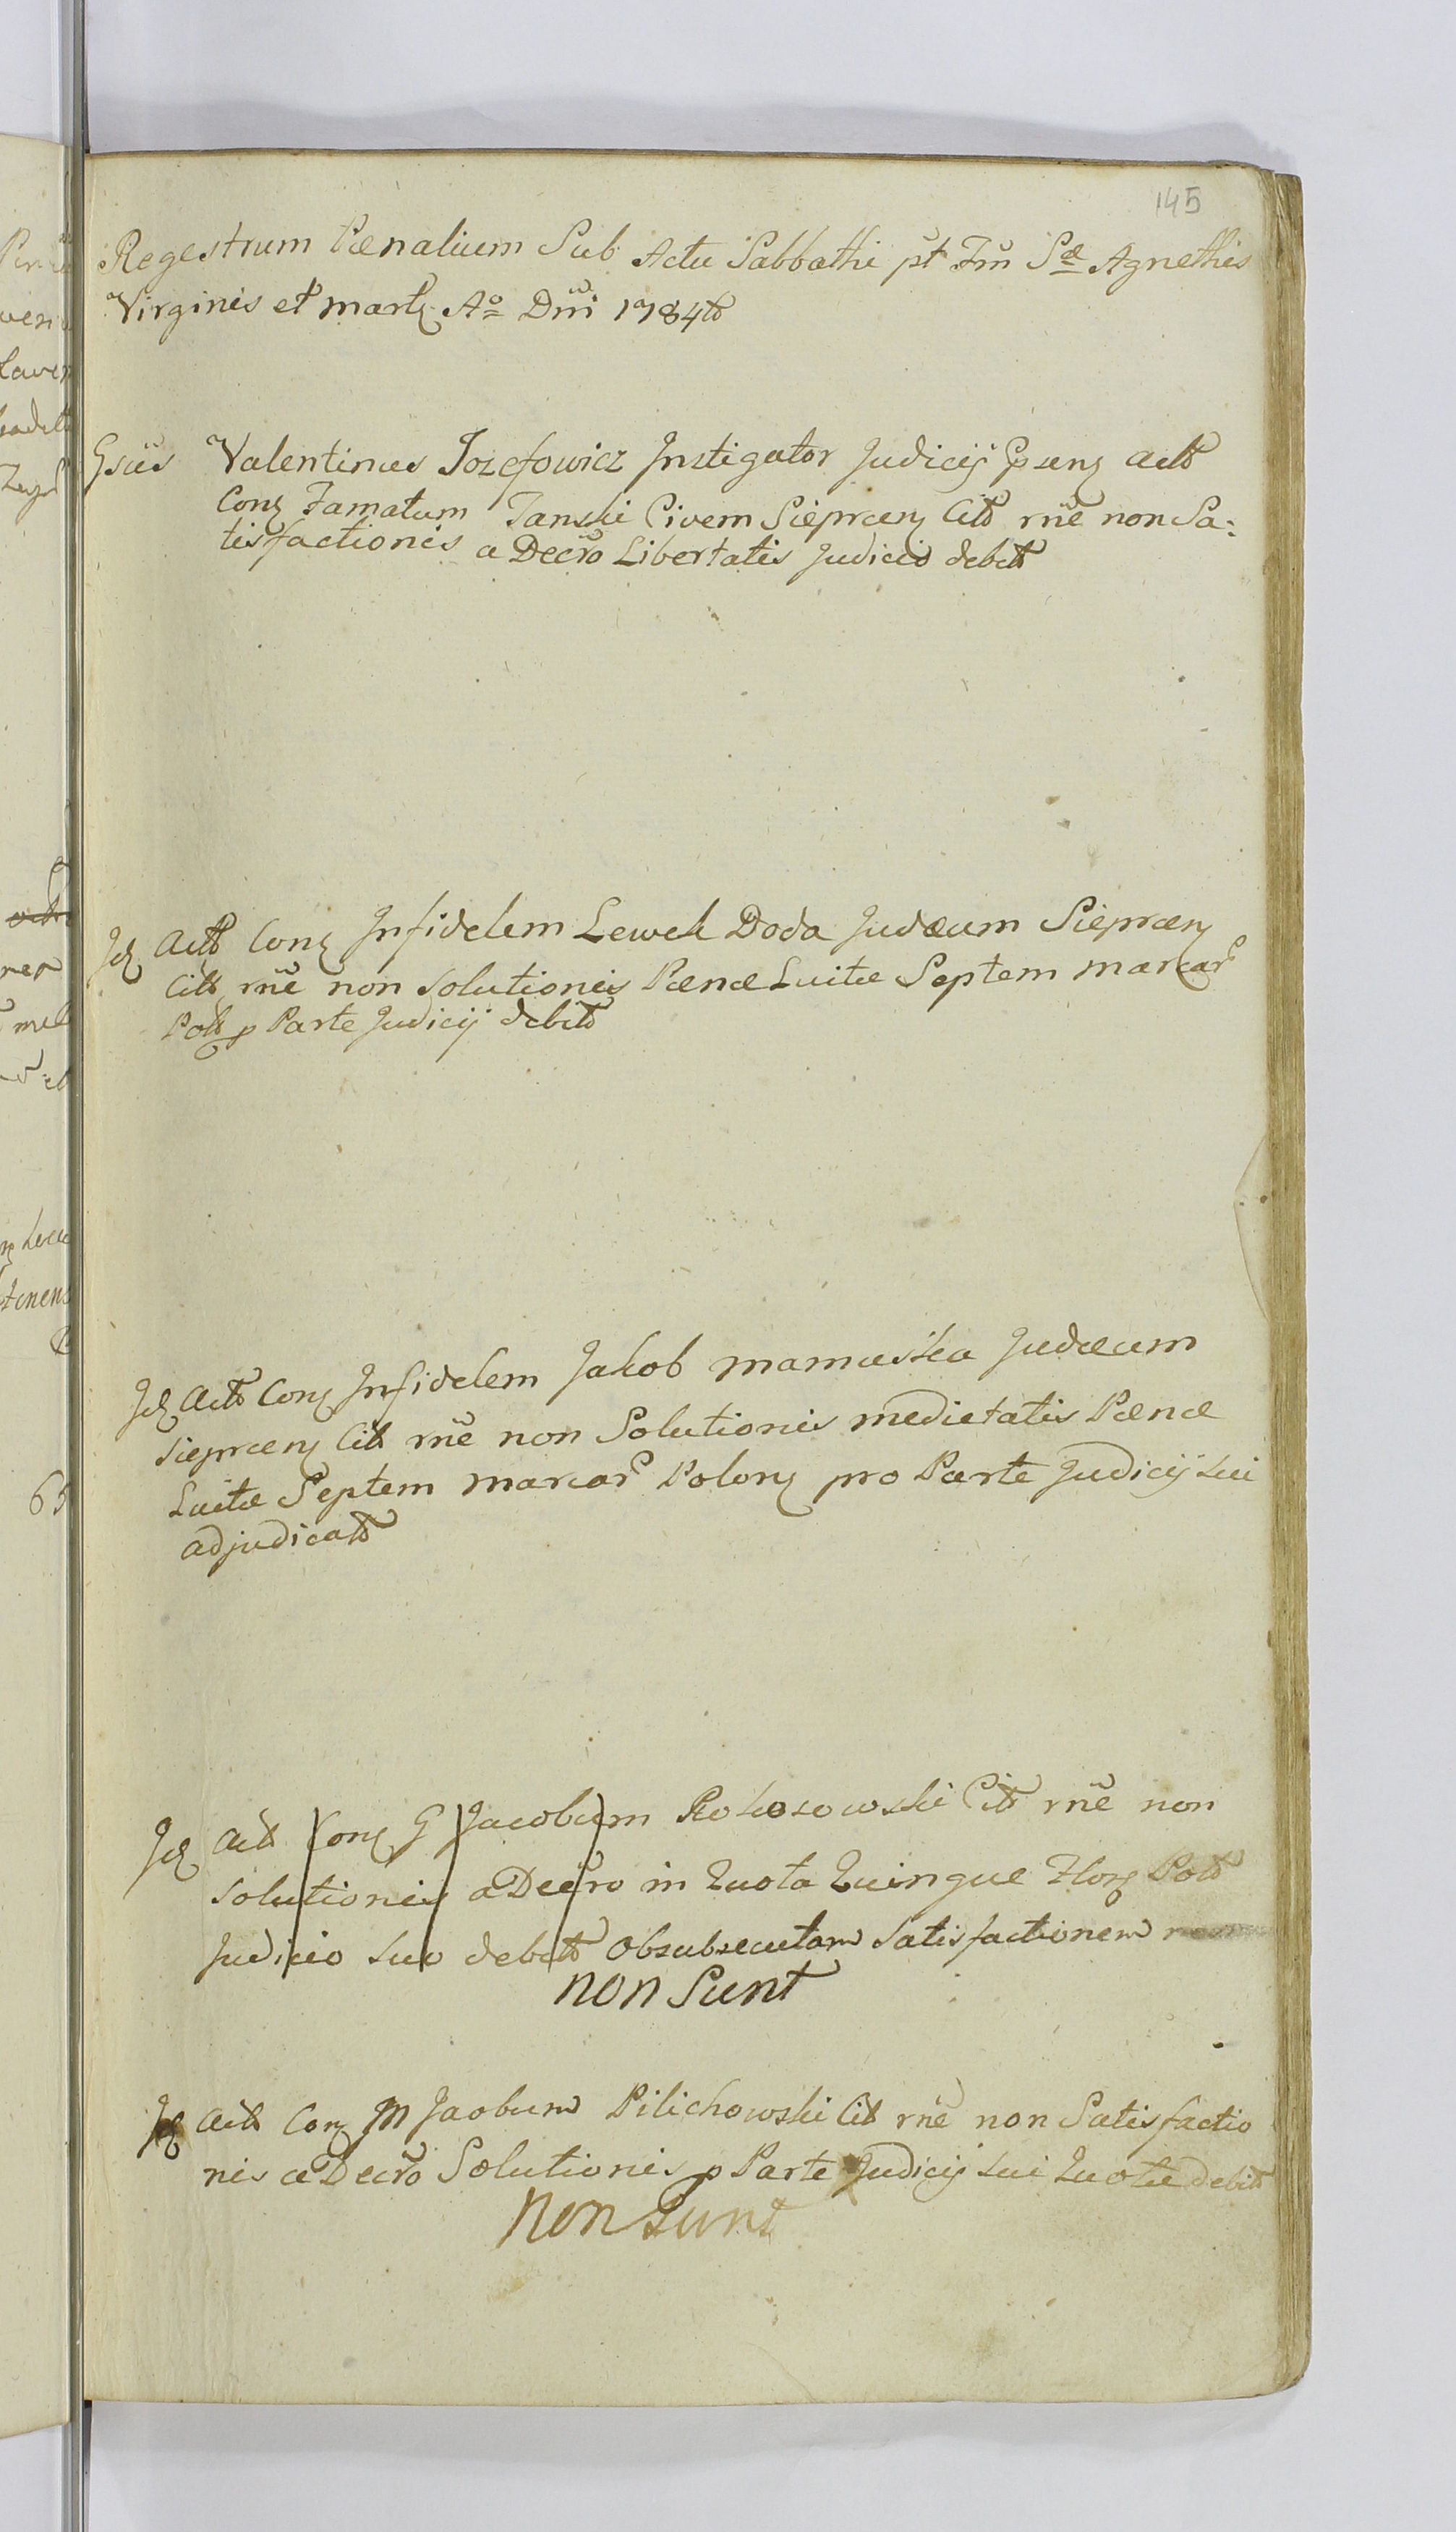 145
Regestrum Pœnalium Sub Actu Sabbathi pt Fm̃ Sæ Agnethis
Virginis et Mart. Ao Dm̃i 1784to
Gsus Valentinus Jozefowicz Instigator Judicij psens Actt
Cons Famatum Janski Civem Sieprcens Citt rñe non Sa:
tisfactionis a Decr̃o Libertatis Judicio debitt
Id Actt Cons Infidelem Lewek Doda Judæum Sieprcens
Citt rñe non solutionis Pœnæ Luitæ Septem Marcar
Poltt p Parte Judicij debitt
Id Actt Cons Infidelem Jakob Mamuska Judæum
Sieprcens Citt rñe non Solutionis medietatis Pœnæ
Luitæ Septem Marcar Polons pro Parte Judicij sui
adjudicatt
Id Actt Cons G Jacobum Rokosowski Citt rñe non
Solutionis a Decr̃o in Quota Quinque Flor Poltt
Judicio suo debitt Obsubsecutam Satisfactionem
non Sunt
Id Actt Cons M Jaobum Pilichowski Citt rñe non Satisfactio
nis a Decr̃o Solutionis p Parte Judicij sui Quotæ debitt
Non Sunt